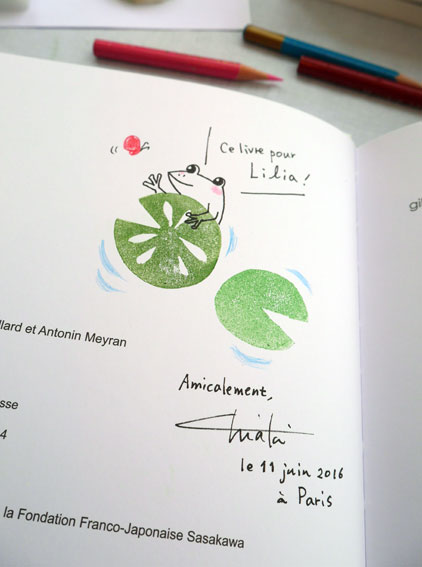 Ce livre pour
Lilia !
llard et Antonin Meyran
sse
4
Amicalement,
le 11 juin 2016
à Paris
la Fondation Franco-Japonaise Sasakawa
gi